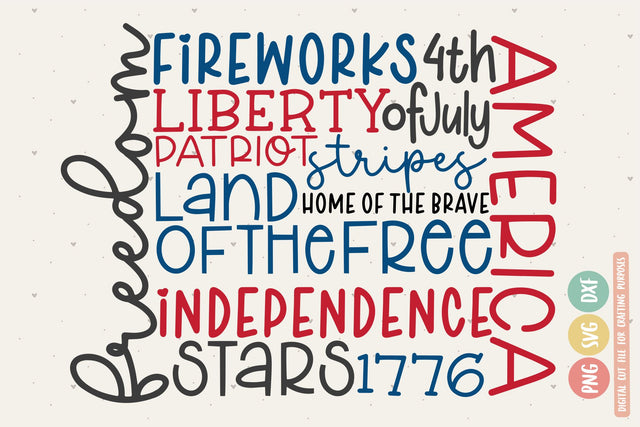 freedom
FiREWORKS
4th
of July
LIBERTY
PATRIOT
stripes
LAND
HOME OF THE BRAVE
OF THE FREE
iNDEPENDENCE
STARS
1776
AMERICA
PNG
SVG
DXF
DIGITAL CUT FILE FOR CRAFTING PURPOSES